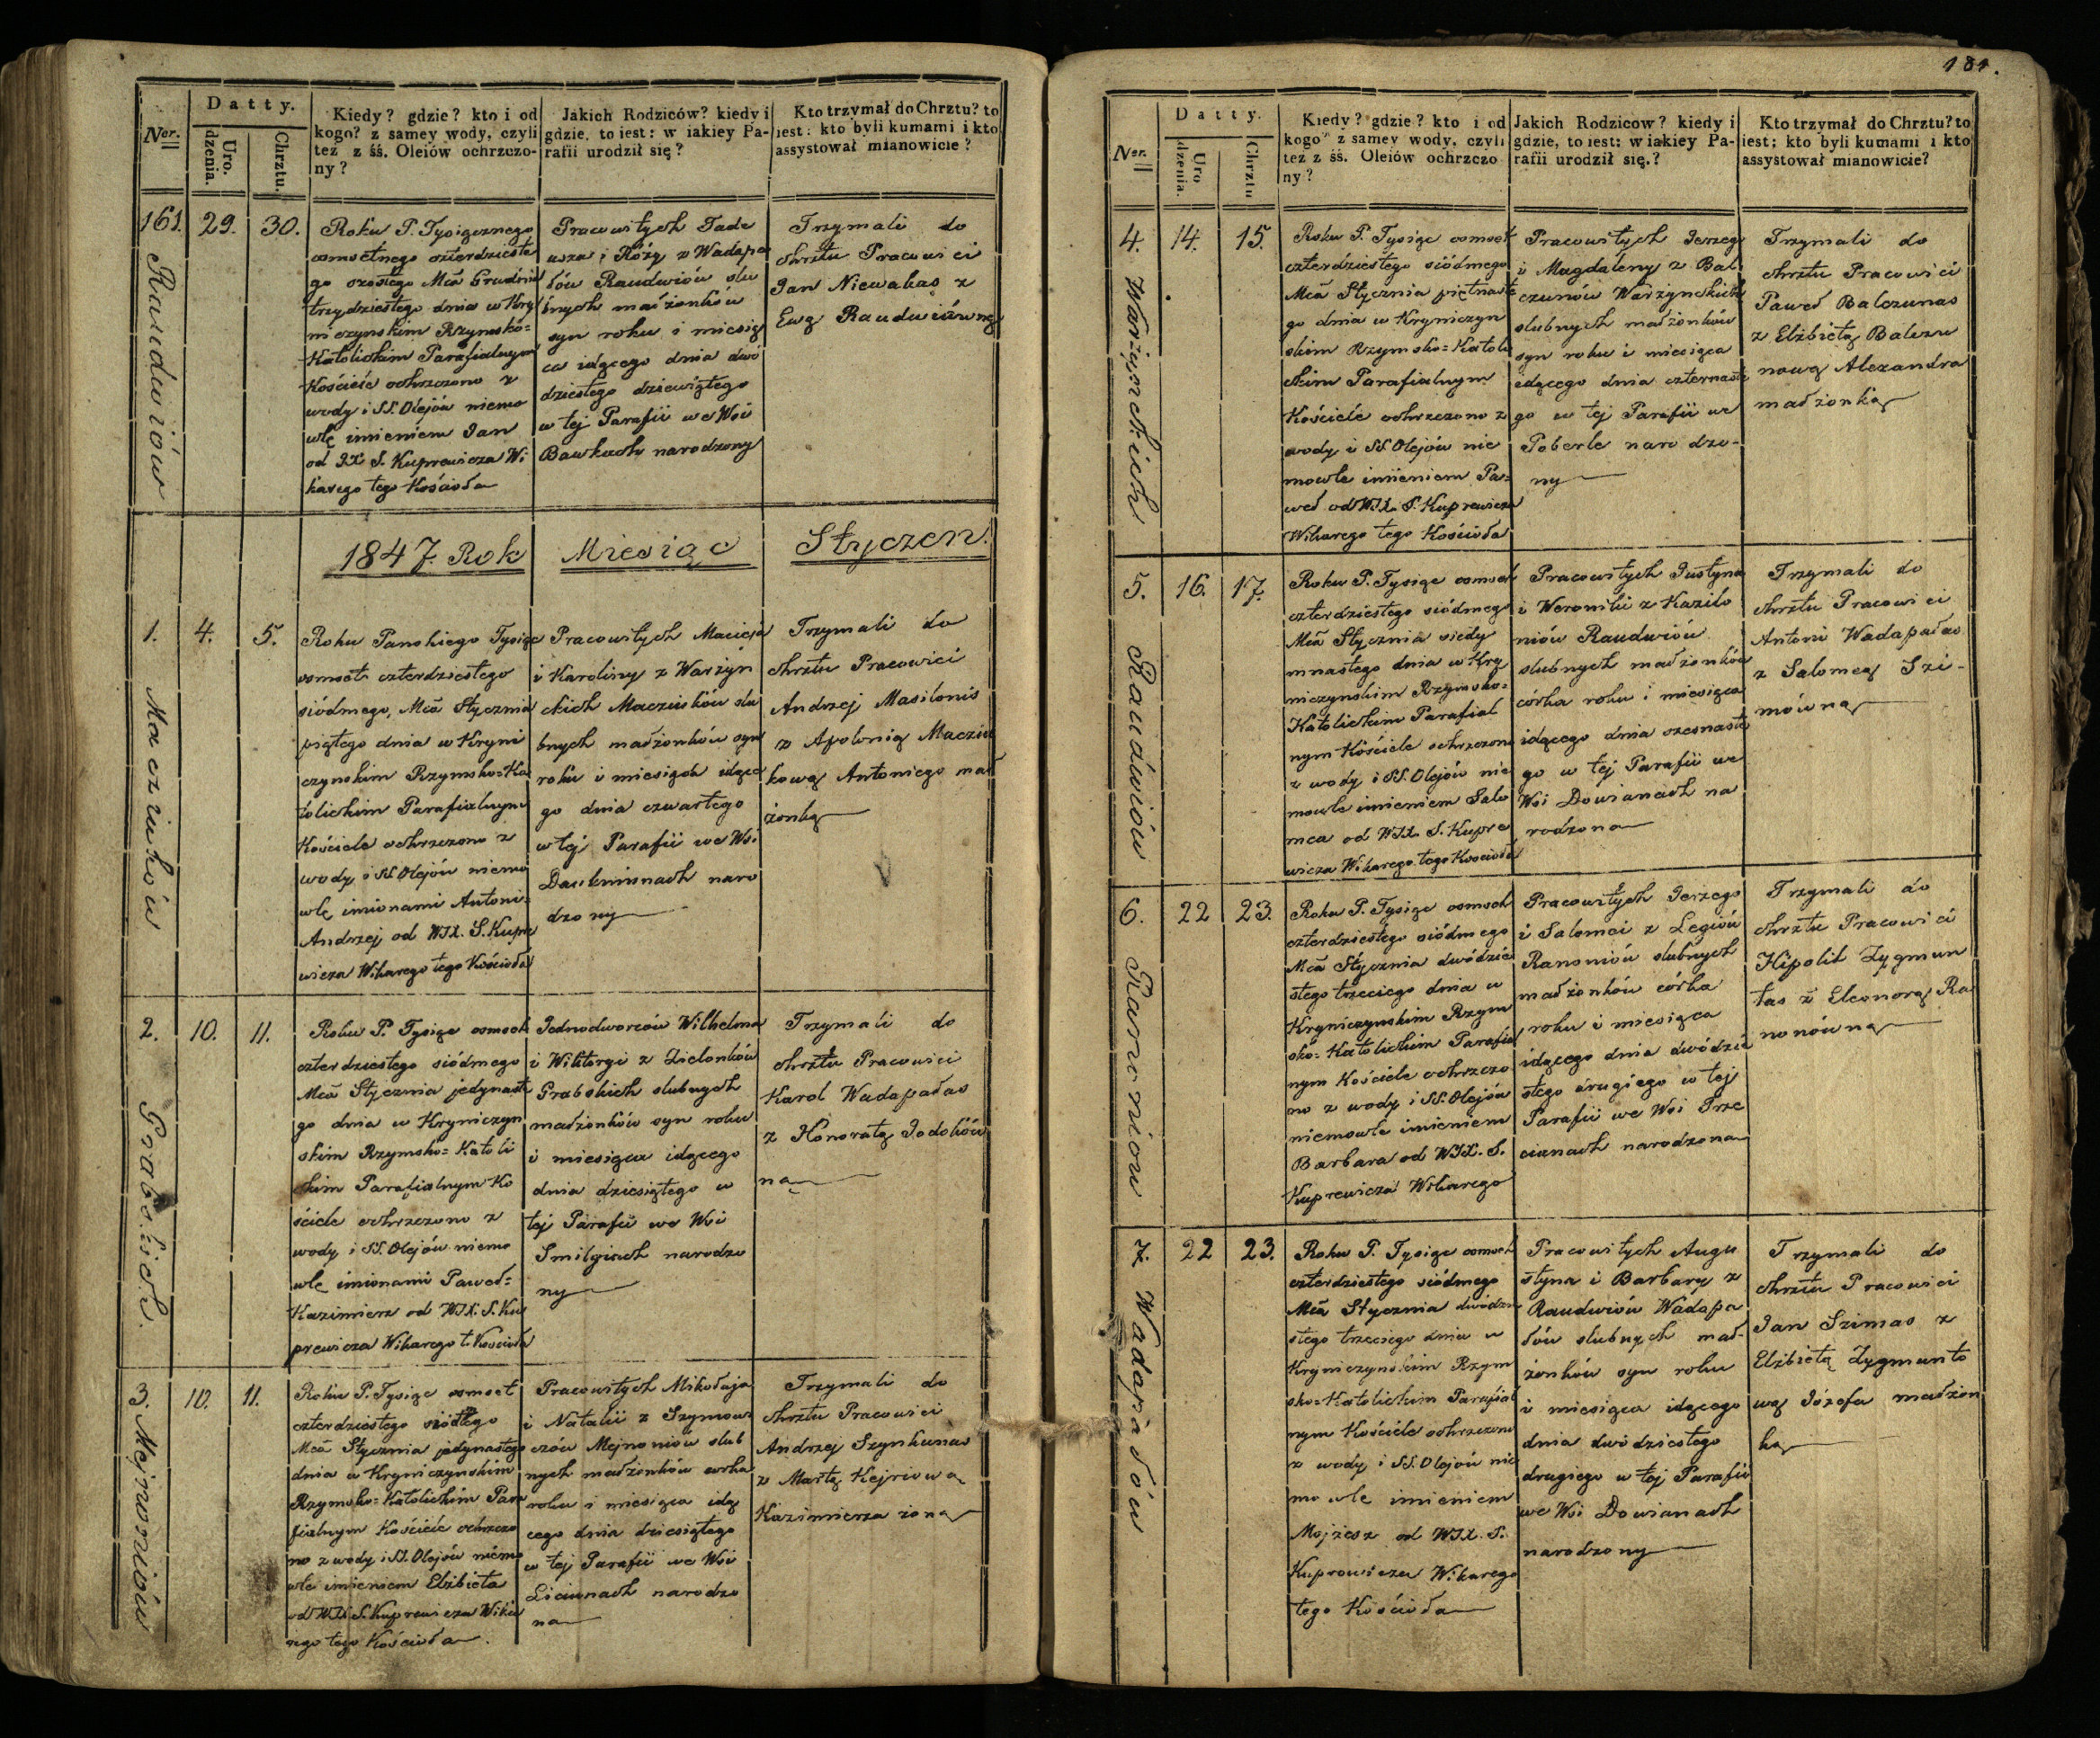 Datty.
Ner.
Uro.
dzenia.
Chrztu.
Kiedy? gdzie? kto i od
kogo? z samey wody, czyli
też z śś. Oleiów ochrzczo-
ny?
Jakich Rodziców? kiedy i
gdzie, to iest: w iakiey Pa-
rafii urodził się?
Kto trzymał do Chrztu? to
iest: kto byli kumami i kto
assystował mianowicie?
161. 29. 30.
Raudwiów
Roku P. Tysiącznego
osmsetnego czterdzieste
go szostego Mca Grudnia
trzydziestego dnia w Kry
niczynskim Rzymsko=
Katolickim Parafialnym
Kościele ochrzczono z
wody i SS. Olejów niemo
wlę imieniem Jan
od JX S. Kuprewicza Wi
karego tego Kościoła
Pracowitych Tade
usza i Róży z Wadapa
łów Raudwiów slu
bnych małżonków
syn roku i miesią
ca idącego dnia dwó
dziestego dziewiątego
w tej Parafii we Wsi
Bawkach narodzony
Trzymali do
chrztu Pracowici
Jan Niewakas z
Ewą Raudwiówną
1847. Rok Miesiąc Styczen.
1. 4. 5.
Macziuków
Roku Panskiego Tysiąc
osmset czterdziestego
siódmego, Mca Stycznia
piątego dnia w Kryni
czynskim Rzymsko=Ka
tolickim Parafialnym
Kościele ochrzczono z
wody i SS. Olejów niemo
wlę imionami Antoni=
Andrzej od WJX. S. Kupre
wicza Wikarego tego Kościoła
Pracowitych Macieja
i Karoliny z Warżyn
ckich Macziuków slu
bnych małżonków syn
roku i miesiąca idące
go dnia czwartego
w tej Parafii we Wsi
Daukniunach naro
dzony
Trzymali do
chrztu Pracowici
Andrzej Masilonis
z Apolonią Macziu
kową Antoniego mał
żonką
2. 10. 11.
Grabskich.
Roku P. Tysiąc osmset
czterdziestego siódmego
Mca Stycznia jedynaste
go dnia w Kryniczyn
skim Rzymsko=Katoli
ckim Parafialnym Ko
ściele ochrzczono z
wody i SS. Olejów niemo
wlę imionami Paweł=
Kazimierz od WJX. S. Ku
prewicza Wikarego t. Kościoła
Jednodworców Wilhelma
i Wiktoryi z Zielonków
Grabskich slubnych
małżonków syn roku
i miesiąca idącego
dnia dziesiątego w
tej Parafii we Wsi
Smilgiach narodzo
ny
Trzymali do
chrztu Pracowici
Karol Wadapałas
z Honoratą Jodoków
ną
3. 10. 11.
Mejnoniów
Roku P. Tysiąc osmset
czterdziestego siódmego
Mca Stycznia jedynastego
dnia w Kryniczynskim
Rzymsko=Katolickim Para
fialnym Kościele ochrzczo
no z wody i SS. Olejów niemo
wlę imieniem Elżbieta
od WJX. S. Kuprewicza Wika
rego tego Kościoła.
Pracowitych Mikołaja
i Natalii z Szymow
czów Mejnoniów slub
nych małżonków corka
roku i miesiąca idą
cego dnia dziesiątego
w tej Parafii we Wsi
Liciunach narodzo
na
Trzymali do
chrztu Pracowici
Andrzej Szynkunas
z Martą Kejriową
Kazimierza żoną
181.
Datty.
Ner.
Uro
dzenia.
Chrztu
Kiedy? gdzie? kto i od
kogo? z samey wody, czyli
też z śś. Oleiów ochrzczo
ny?
Jakich Rodziców? kiedy i
gdzie, to iest: w iakiey Pa-
rafii urodził się?
Kto trzymał do Chrztu? to
iest; kto byli kumami i kto
assystował mianowicie?
4. 14. 15.
Warżynckich
Roku P. Tysiąc osmset
czterdziestego siódmego
Mca Stycznia piętnaste
go dnia w Kryniczyn
skim Rzymsko=Katoli
ckim Parafialnym
Kościele ochrzczono z
wody i SS. Olejów nie
mowle imieniem Pa=
weł od WJX. S. Kuprewicza
Wikarego tego Kościoła
Pracowitych Jerzego
i Magdaleny z Bal
czunów Warżynckich
slubnych małżonków
syn roku i miesiąca
idącego dnia czternaste
go w tej Parafii we
Poberle narodzo-
ny
Trzymali do
chrztu Pracowici
Paweł Balczunas
z Elżbietą Balczu
nową Alexandra
małżonką
5. 16. 17.
Raudwiów
Roku P. Tysiąc osmset
czterdziestego siódmego
Mca Stycznia siedy
mnastego dnia w Kry
niczynskim Rzymsko=
Katolickim Parafial
nym Kościele ochrzczono
z wody i SS. Olejów nie
mowle imieniem Salo
mea od WJX. S. Kupre
wicza Wikarego tego Kościoła
Pracowitych Justyna
i Weroniki z Kazilo
niów Raudwiów
slubnych małżonków
córka roku i miesiąca
idącego dnia szesnaste
go w tej Parafii we
Wsi Dowianach na
rodzona
Trzymali do
chrztu Pracowici
Antoni Wadapałas
z Salomeą Szi-
mówną
6. 22 23.
Ranoniów
Roku P. Tysiąc osmset
czterdziestego siódmego
Mca Stycznia dwódzie
stego trzeciego dnia w
Kryniczynskim Rzym
sko=Katolickim Parafial
nym Kościele ochrzczo
no z wody i SS. Olejów
niemowle imieniem
Barbara od WJX. S.
Kuprewicza Wikarego
Pracowitych Jerzego
i Salomei z Legiów
Ranoniów slubnych
małżonków córka
roku i miesiąca
idącego dnia dwódzie
stego drugiego w tej
Parafii we Wsi Prze
cianach narodzona
Trzymali do
chrztu Pracowici
Hipolit Zygmun
tas z Eleonorą Ra
nonówną
7. 22 23.
Wadapałów
Roku P. Tysiąc osmset
czterdziestego siódmego
Mca Stycznia dwódzie
stego trzeciego dnia w
Kryniczynskim Rzym
sko=Katolickim Parafial
nym Kościele ochrzczono
z wody i SS. Olejów nie
mowle imieniem
Mojżesz od WJX. S.
Kuprewicza Wikarego
tego Kościoła
Pracowitych Augu
styna i Barbary z
Raudwiów Wadapa
łów slubnych mał-
żonków syn roku
i miesiąca idącego
dnia dwódziestego
drugiego w tej Parafii
we Wsi Dowianach
narodzony
Trzymali do
chrztu Pracowici
Jan Szimas z
Elżbietą Zygmunto
wą Józefa małżon
ką